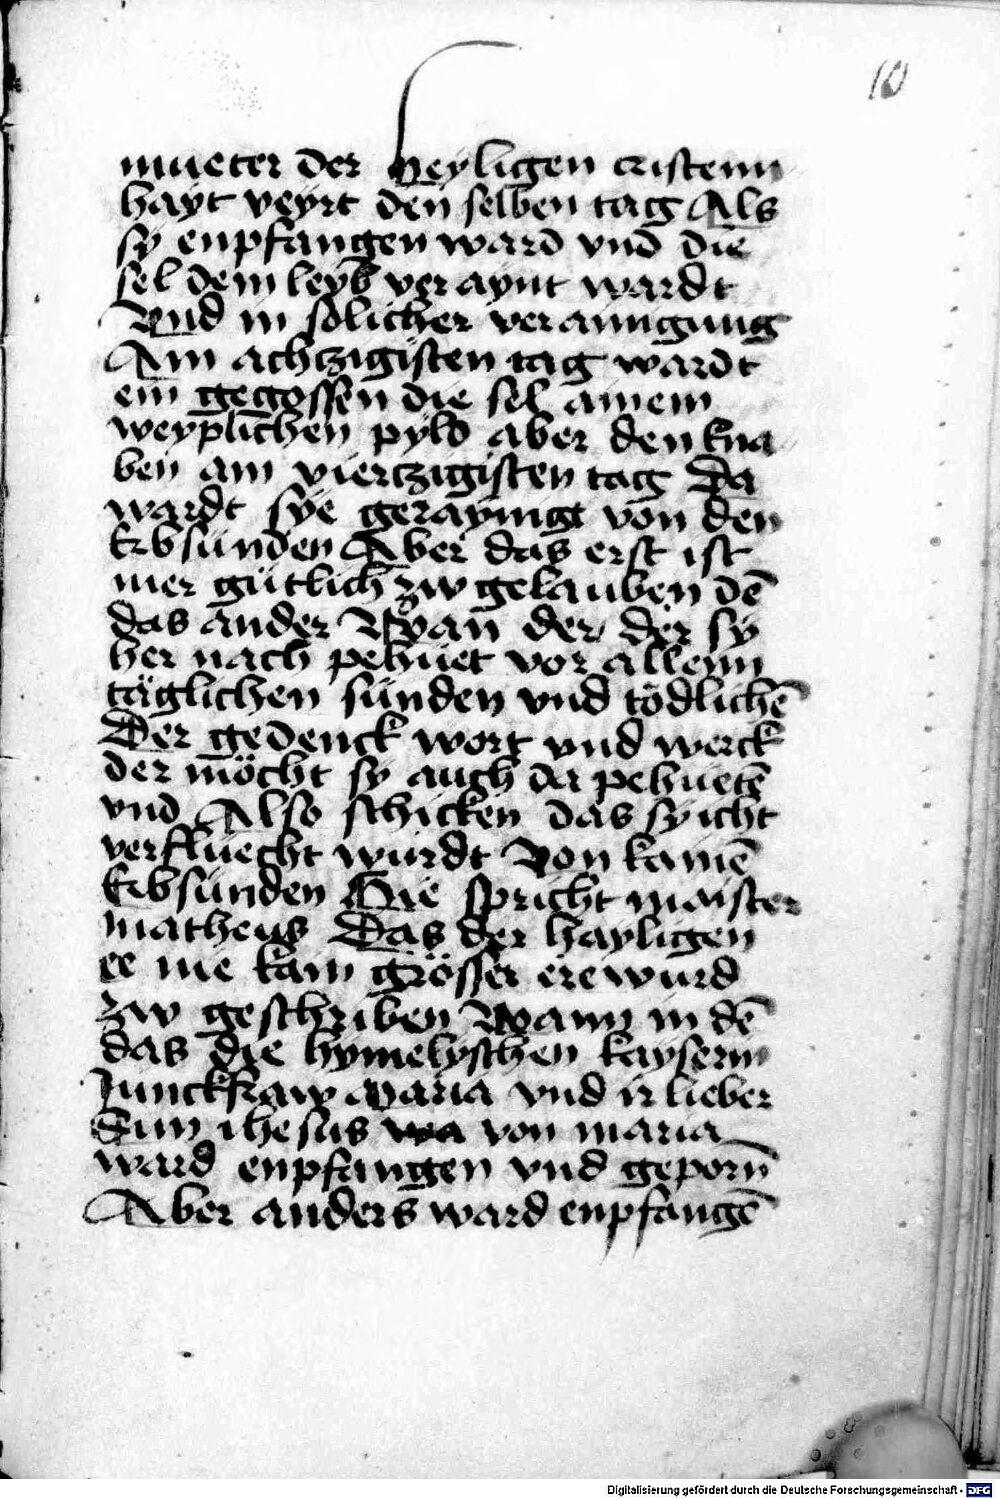 10
mueter der heyligen cristenn
hayt veyrt den selben tag Als
sy enpfangen ward vnd die
sel dem leyb ver aynt wardt
Vnd in solicher verainigung
Am achtzigisten tag wardt
ein gegossen die sel ainem
weyplichen pyld aber den kna
ben am viertzigisten tag Da
wardt sye geraynigt von den
Erbsünden Aber das erst ist
mer gütlich zw gelauben dē
das ander Wan der der sy
her nach pehuet vor allenn
täglichen sünden vnd tödlichē
Der gedenck wort vnd werck
der möcht sy auch da pehuetē
vnd Also schicken das sy icht
verfluecht würdt Von kainē
Erbsünden Hie spricht maister
matheus Das der hayligen
ee nie kain grösser ere wurd
zw geschriben Wann in dē
das die hymelyschen kayserin
Junckfraw Maria vnd ir lieber
Sun ihesus wa von maria
ward enpfangen vnd geporn
Aber anders ward enpfangē
Digitalisierung gefördert durch die Deutsche Forschungsgemeinschaft - DFG